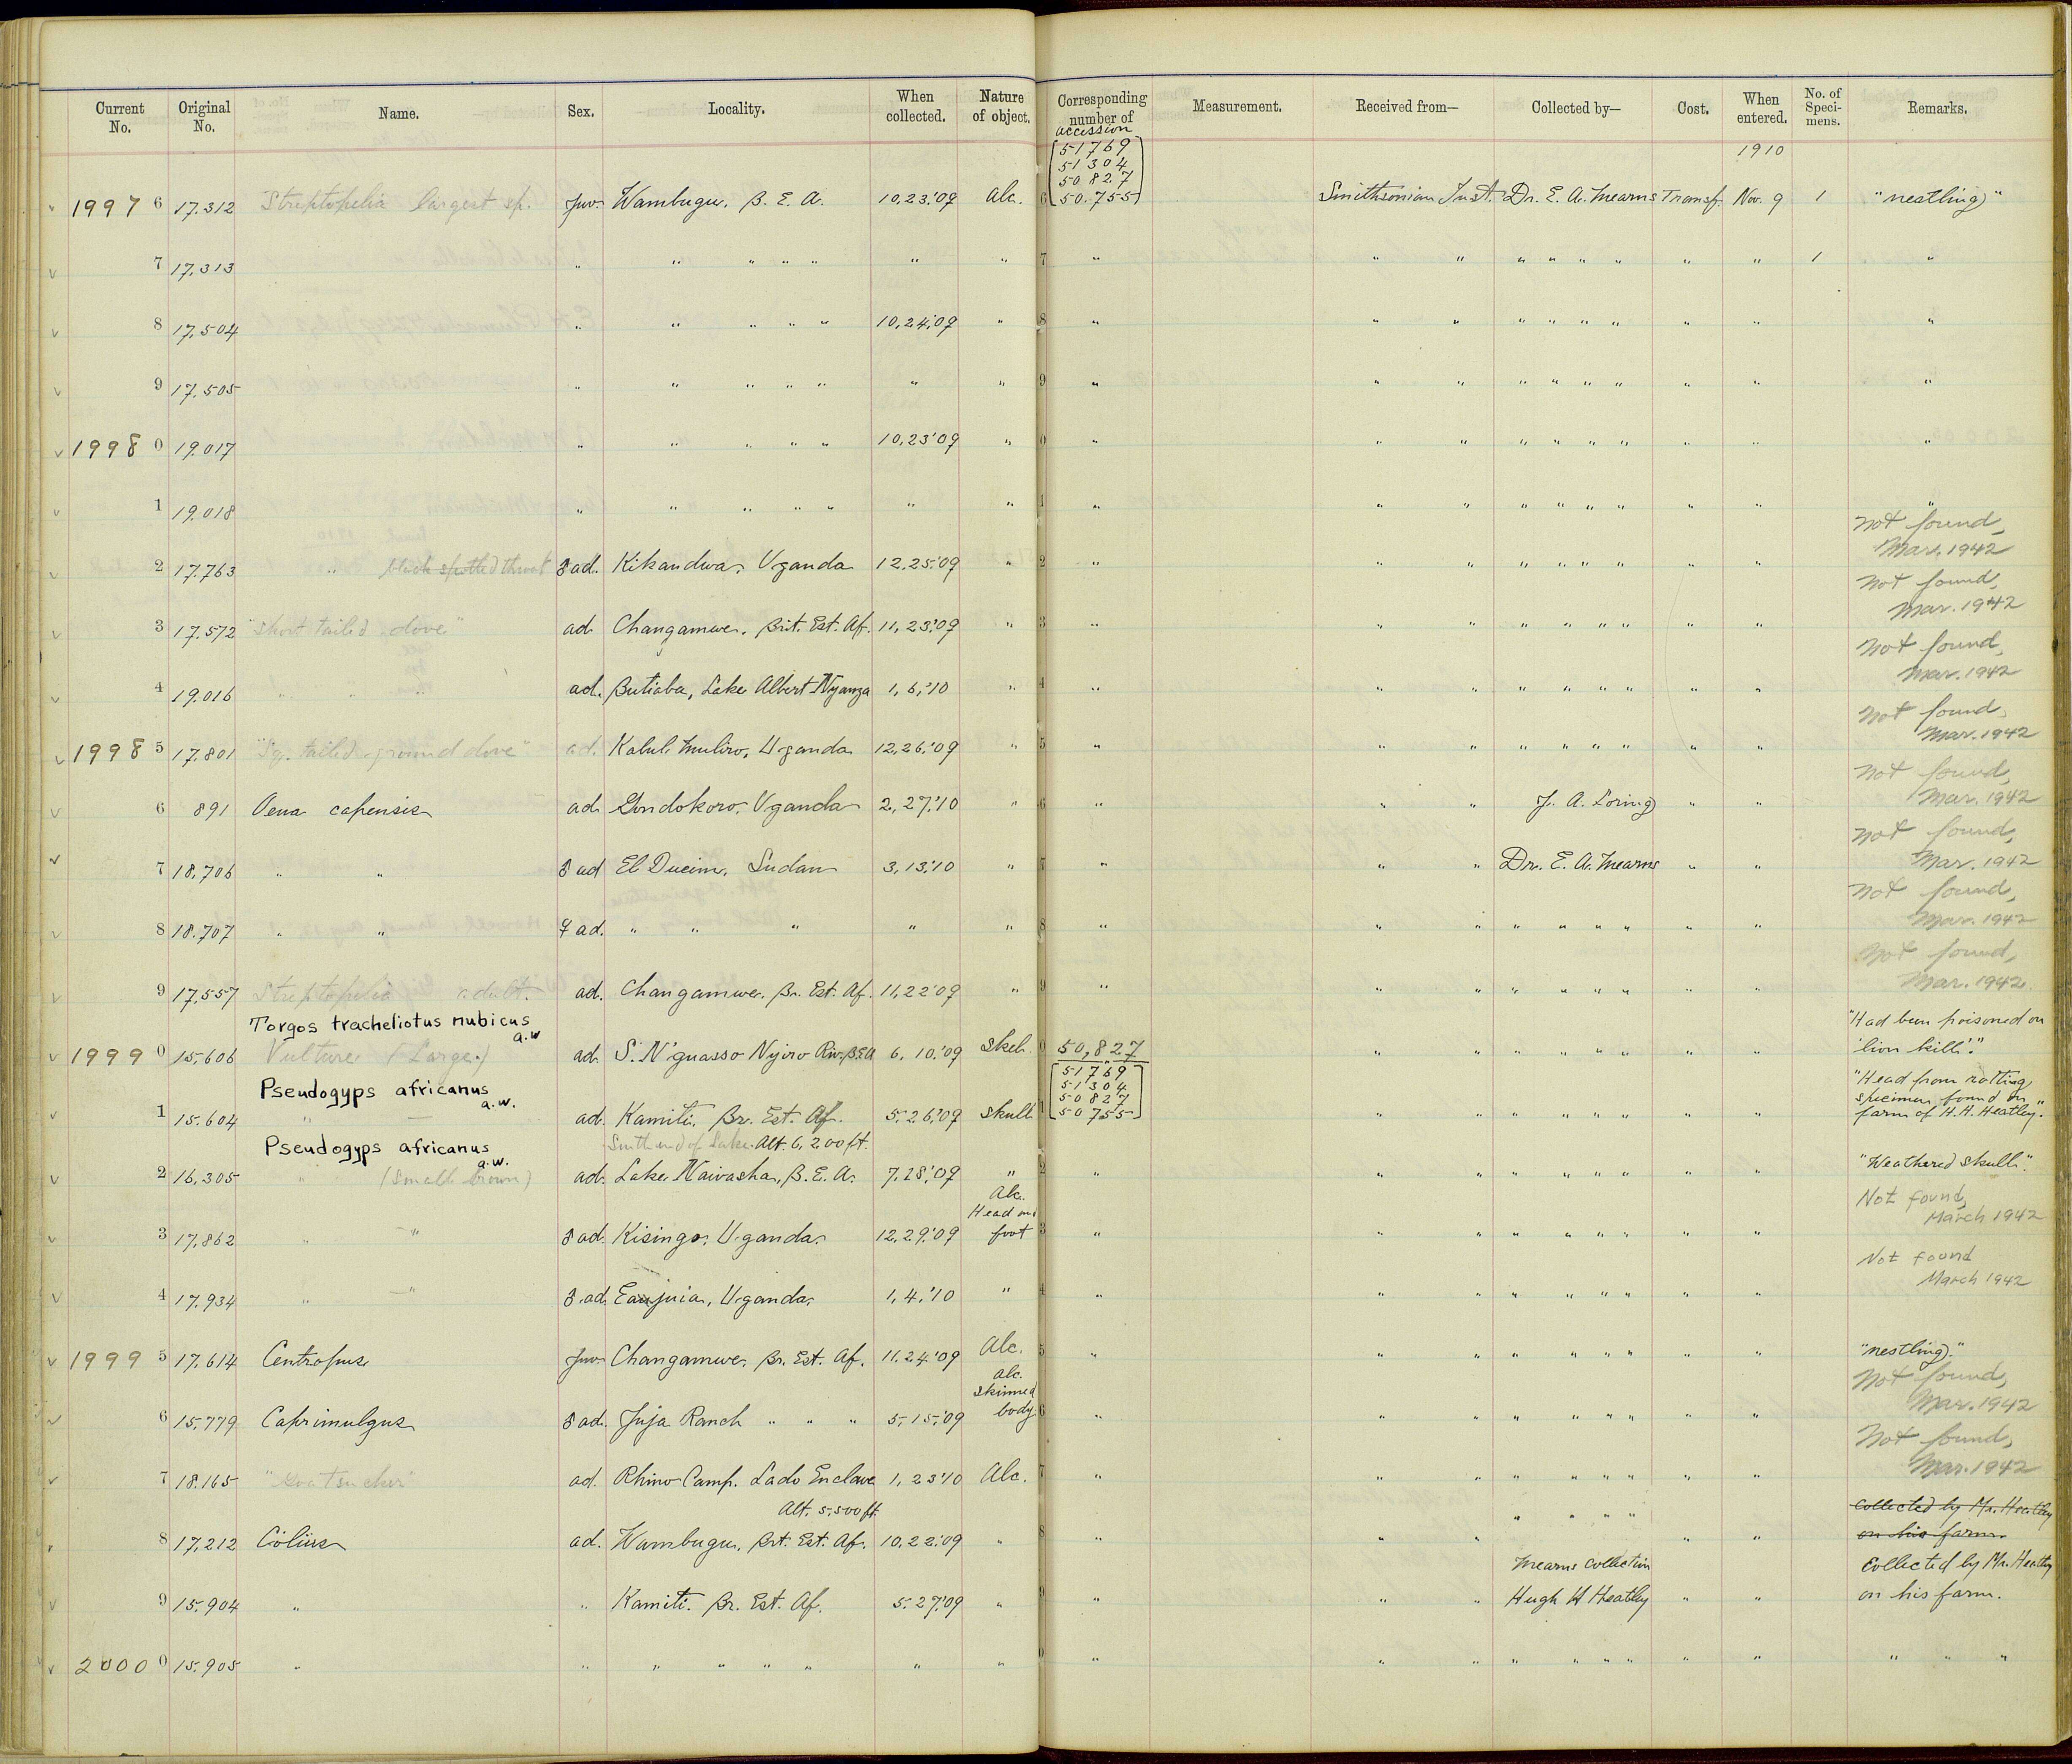 Current No. Original No. Name. Sex. Locality. When collected. Nature of object. Corresponding number of accession Measurement. Received from— Collected by— Cost. When entered. No. of Speci- mens. Remarks.
[51769
51304
50827
50.755] 1910
1997 6 17.312 Streptopelia largest sp. Juv. Wambugu. B. E. A. 10,23,'09 Alc. 6 Smithsonian Inst. Dr. E. A. Mearns Transf. Nov. 9 1 "nestling"
7 17.313 " " " " " " " 7 " " " " " " " " " 1 "
8 17.504 " " " " " 10,24,'09 " 8 " " " " " " " " " "
9 17.505 " " " " " " " 9 " " " " " " " " " "
1998 0 19.017 " " " " " 10,23'09 " 0 " " " " " " " " " "
1 19.018 " " " " " " " 1 " " " " " " " " " "
2 17.763 " black spotted throat ♂ ad. Kikandwa, Uganda 12.25.'09 " 2 " " " " " " " " " Not found, Mar. 1942
3 17.572 "Short tailed dove" ad. Changamwe. Brit. Est. Af. 11,23,'09 " 3 " " " " " " " " " Not found, Mar. 1942
4 19.016 " " " ad. Butiaba, Lake Albert Nyanza 1,6,'10 " 4 " " " " " " " " " Not found, Mar. 1942
1998 5 17.801 "Sq. tailed ground dove" ad. Kabul. Muliro, Uganda 12,26,'09 " 5 " " " " " " " " " Not found, Mar. 1942
6 891 Oena capensis ad. Gondokoro, Uganda 2,27,'10 " 6 " " " J. A. Loring " " Not found, Mar. 1942
7 18.706 " " ♂ ad El Dueim, Sudan 3,13,'10 " 7 " " " Dr. E. A. Mearns " " Not found, Mar. 1942
8 18.707 " " ♀ ad. " " " " " 8 " " " " " " " " " Not found, Mar. 1942
9 17.557 Streptopelia adult. ad. Changamwe. Br. Est. Af. 11,22'09 " 9 " " " " " " " " " Not found, Mar. 1942
Torgos tracheliotus nubicus a.w
1999 0 15.606 Vulture (Large) ad. S. N'guasso Nyiro Riv. B.E.A 6,10,'09 Skel. 0 50,827 " " " " " " " " "Had been poisoned on 'lion kill'."
Pseudogyps africanus a.w.
[51769
51304
50827
50755]
1 15.604 " — ad. Kamiti, Br. Est. Af. 5,26,'09 Skull 1 " " " " " " " " "Head from rotting specimen found on farm of H. H. Heatley."
Pseudogyps africanus a.w. South end of Lake. Alt 6,200 ft.
2 16.305 " (Small brown) ad. Lake Naivasha, B. E. A. 7,28,'09 " 2 " " " " " " " " " "Weathered skull".
3 17.862 " —" ♂ ad. Kisingo, Uganda. 12,29,'09 Alc. Head and foot 3 " " " " " " " " " Not found, March 1942
4 17.934 " —" ♂ ad. Uganda. 1,4,'10 " 4 " " " " " " " " " Not found March 1942
1999 5 17.614 Centropus Juv. Changamwe, Br. Est. Af. 11.24.'09 Alc. 5 " " " " " " " " " "nestling."
6 15.779 Caprimulgus ♂ ad. Juja Ranch " " " 5,15,'09 Alc. skinned body 6 " " " " " " " " " Not found, Mar. 1942
7 18.165 "Goatsucker" ad. Rhino Camp. Lado Enclave 1,23'10 Alc. 7 " " " " " " " " " Not found, Mar. 1942
Alt. 5,500 ft. Collected by Mr. Heatley
8 17,212 Colius ad. Wambugu, Brt. Est. Af. 10,22'09 " 8 " " " " " " " " " on his farm.
Mearns Collection Collected by Mr. Heatley
9 15.904 " " Kamiti. Br. Est. Af. 5.27.'09 " 9 " " " Hugh H Heatley " " on his farm.
2000 0 15.905 " " " " " " " " 0 " " " " " " " " " " " "